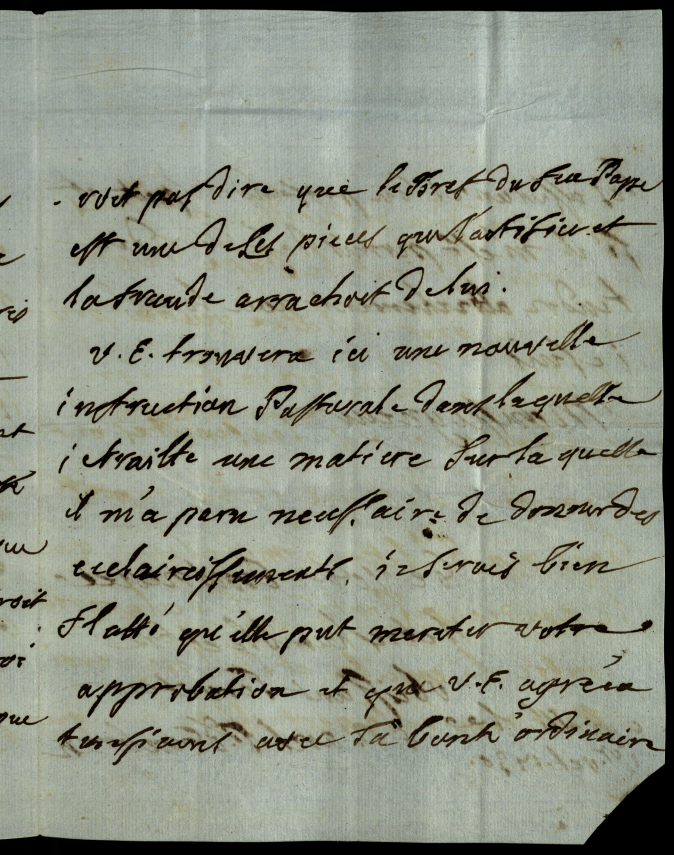 voit pas dire que le Bref du feu Pape
est une de ces pieces que l'artifice et
la fraude arrachoit de lui.
V. E. trouvera ici une nouvelle
instruction Pastorale dans laquelle
je traitte une matiere sur la quelle
il m'a paru necessaire de donner des
eclaircissements, je serois bien
flatté qu'elle put meriter votre
approbation et que V. E. agréa
avec sa bonté ordinaire